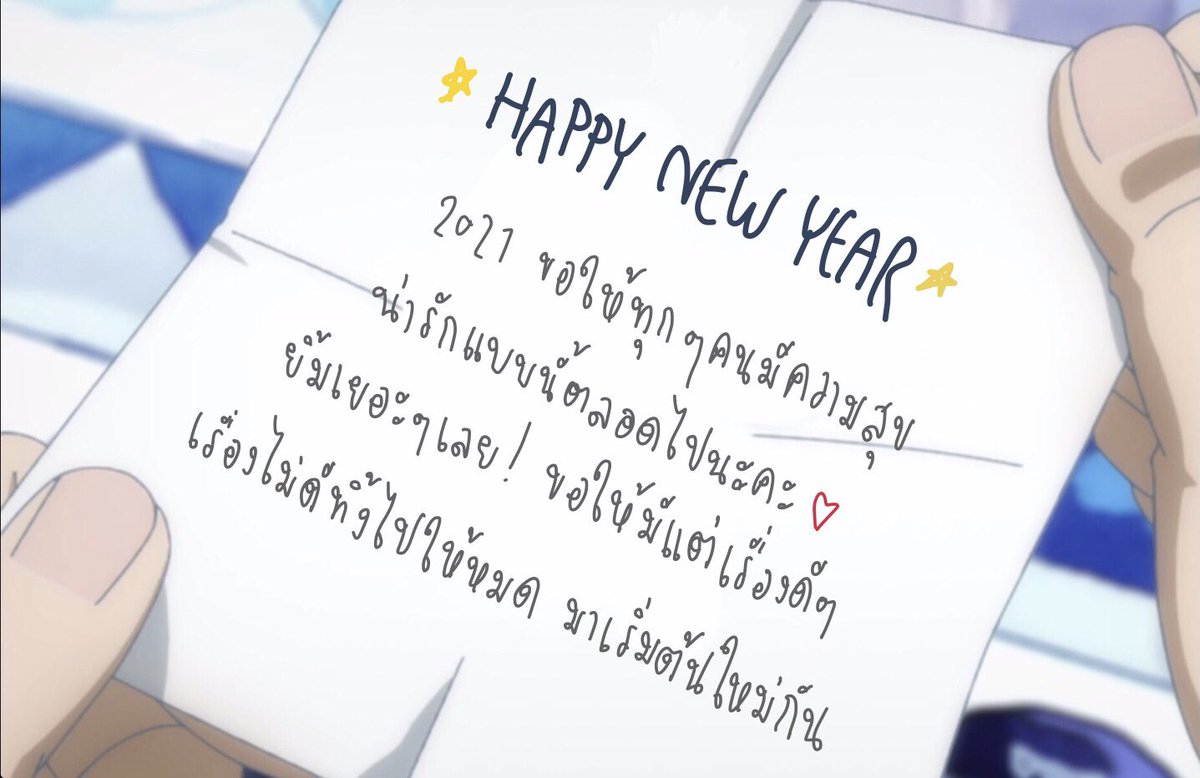 HAPPY NEW YEAR
2021 ขอให้ทุกๆคนมีความสุข
น่ารักแบบนี้ตลอดไปนะคะ
ยิ้มเยอะๆเลย! ขอให้มีแต่เรื่องดีๆ
เรื่องไม่ดีทิ้งไปให้หมด มาเริ่มต้นใหม่กัน